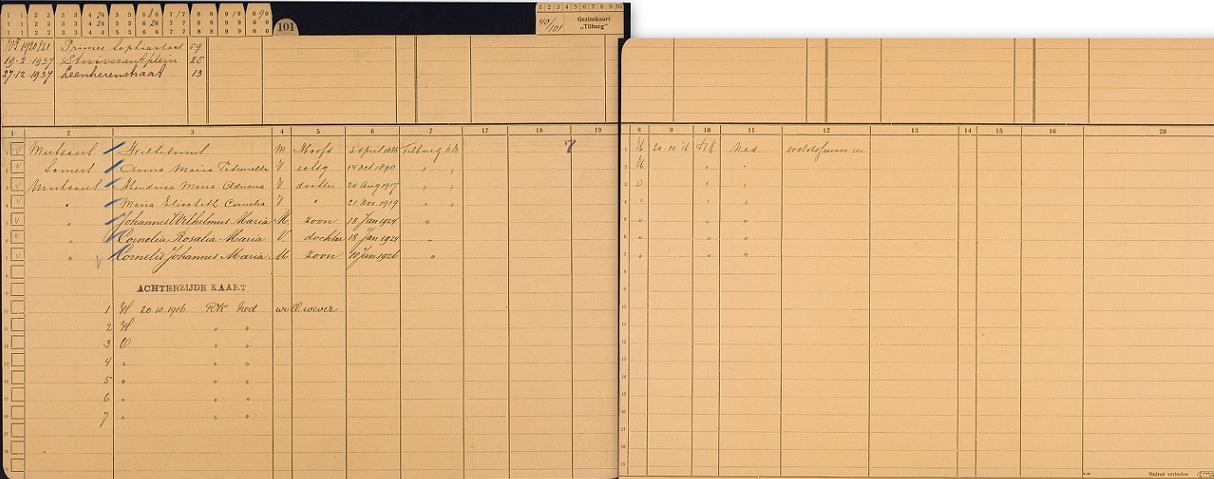 101
40/101
Gezinskaart
„Tilburg"
1920/21 Prinses Sophiastraat 59
19-2 1937 Stuivesantplein 25
27-12 1937 Leenherenstraat 13
1 2 3 4 5 6 7 17 18 19
Mutsaers Wilhelmus M Hoofd 3 April 1886 Tilburg
Anna Maria Petronella V echtg 14 Oct 1890 "
Mutsaers Hendrica Maria Adriana V dochter 20 Aug 1917 "
" Maria Elisabeth Cornelia V " 21 Nov. 1919 "
" Johannes Wilhelmus Maria M. zoon 18 Jan 1924 "
" Cornelia Rosalia Maria V. dochter 18 Jan 1924 "
" Cornelis Johannes Maria M zoon 10 Jan 1926 "
ACHTERZIJDE KAART
1 H 20.10.1916 RK Ned woll. wever
2 H " "
3 O " "
4 " " "
5 " " "
6 " " "
7 " " "
8 9 10 11 12 13 14 15 16 20
H 20-10-'16 R.K Ned
H " "
O " "
" " "
" " "
" " "
" " "
Nadruk verboden